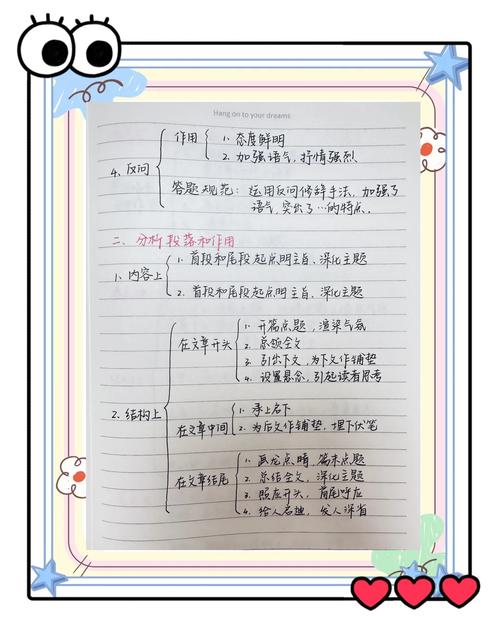 Hang on to your dreams
4. 反问
作用
1. 态度鲜明
2. 加强语气，抒情强烈
答题规范：运用反问修辞手法，加强了
语气，突出了…的特点．
二、分析段落和作用
1. 内容上
1. 首段和尾段起点明主旨、深化主题
2. 首段和尾段起点明主旨、深化主题
2. 结构上
在文章开头
1. 开篇点题，渲染气氛
2. 总领全文
3. 引出下文，为下文作铺垫
4. 设置悬念，引起读者思考
在文章中间
1. 承上启下
2. 为后文作铺垫，埋下伏笔
在文章结尾
1. 画龙点睛，篇末点题
2. 总结全文，深化主题
3. 照应开头，首尾呼应
4. 给人启迪，发人深省